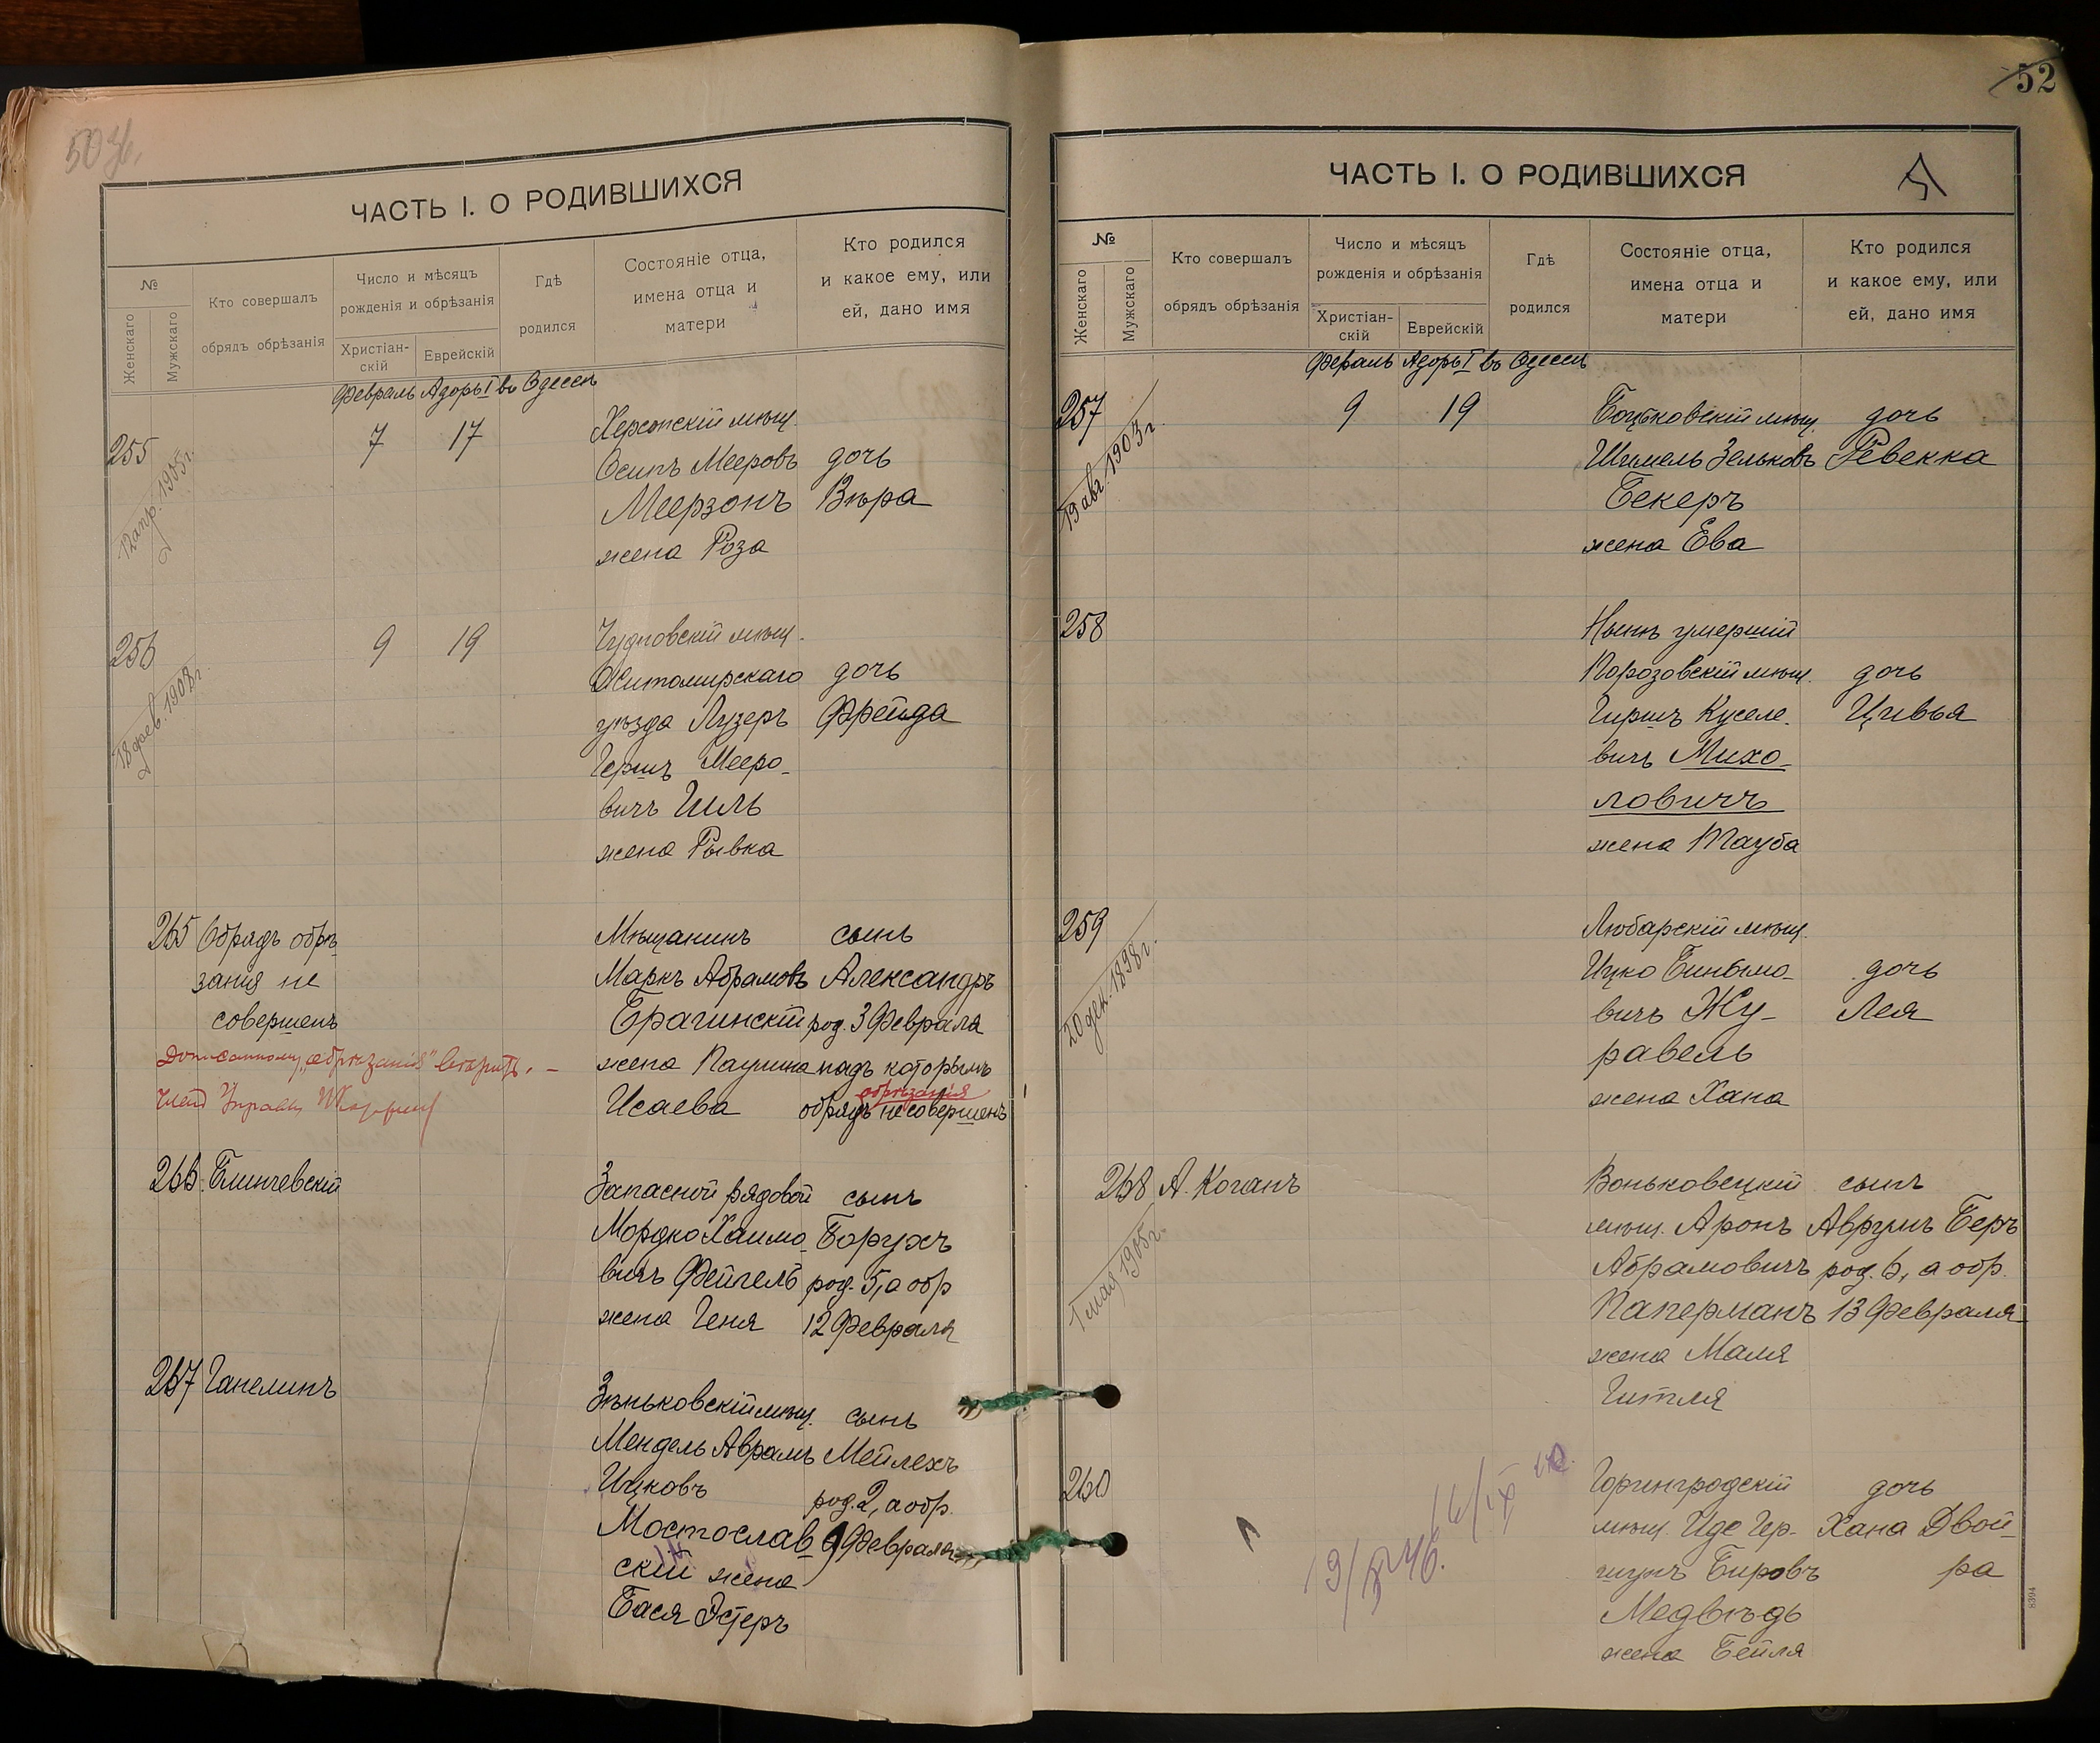 52
ЧАСТЬ I. О РОДИВШИХСЯ
№
Женскаго
Мужскаго
Кто совершалъ
обрядъ обрѣзанія
Число и мѣсяцъ
рожденія и обрѣзанія
Христіан-
скій
Еврейскій
Гдѣ
родился
Состояніе отца,
имена отца и
матери
Кто родился
и какое ему, или
ей, дано имя
Февраль Адоръ I въ Одессѣ
255
12 апр. 1905 г.
7 17
Херсонскій мѣщ.
Осипъ Мееровъ дочь
Меерзонъ Вѣра
жена Роза
256
18 фев. 1908 г.
9 19
Чудновскій мѣщ.
Житомирскаго дочь
уѣзда Лузеръ Фрейда
Гершъ Мееро-
вичъ Гиль
жена Рывка
265 Обрядъ обрѣ
занія не
совершенъ
Мѣщанинъ сынъ
Маркъ Абрамовъ Александръ
Брагинскій род. 3 Февраля
жена Паулина надъ которымъ
обрѣзанія
Исаева обрядъ не совершенъ
Дописанному „обрѣзанія" вѣрить. –
Членъ Управы
266 Блинчевскій
Запасной рядовой сынъ
Мордко Хаимо- Борухъ
вичъ Фейгель род. 5, а обр
жена Геня 12 Февраля
267 Ганелинъ
Зѣньковскій мѣщ. сынъ
Мендель Аврамъ Мейлехъ
Ицковъ род. 2, а обр.
Мостослав- 9 Февраля
скій жена
Бася Эстеръ
ЧАСТЬ I. О РОДИВШИХСЯ
№
Женскаго
Мужскаго
Кто совершалъ
обрядъ обрѣзанія
Число и мѣсяцъ
рожденія и обрѣзанія
Христіан-
скій
Еврейскій
Гдѣ
родился
Состояніе отца,
имена отца и
матери
Кто родился
и какое ему, или
ей, дано имя
Февраль Адоръ I въ Одессѣ
257
19 авг. 1903 г.
9 19
Боцьковскій мѣщ. дочь
Шимель Зельковъ Ревекка
Бекеръ
жена Ева
258
Нынѣ умершій
Порозовскій мѣщ. дочь
Гиршъ Куселе- Цивья
вичъ Михо-
ловичъ
жена Тауба
259
20 дек. 1898 г.
Любарскій мѣщ.
Ицко Биньмо- дочь
вичъ Жу- Лея
равель
жена Хана
268 А. Коганъ
1 мая 1905 г.
Воньковецкій сынъ
мѣщ. Аронъ Аврумъ Беръ
Абрамовичъ род. 6, а обр.
Паперманъ 13 Февраля
жена Маля
Гитля
260
Горингродскій дочь
мѣщ. Иде Гер- Хана Двой-
шунъ Бировъ ра
Медвѣдь
жена Бейля
8394